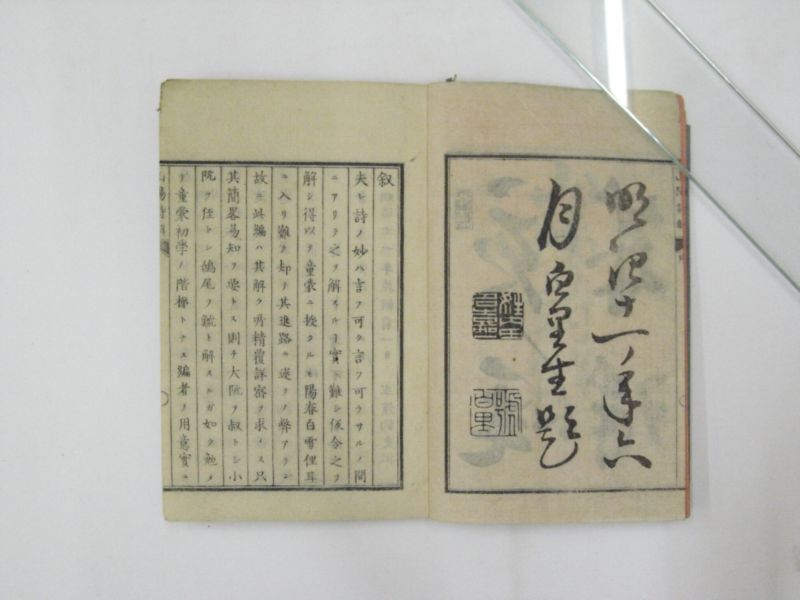 明治十一年六
月百里生題
叙
夫レ詩ノ妙ハ言フ可ク言フ可ラサルノ間
ニアリ之ヲ解スル丁實ニ難シ仮令之ヲ
解シ得以ヲ童蒙ニ授クルモ陽春白雪俚耳
ニ入リ難ク却テ其進路ニ迷ヲノ弊アラン
故ニ此編ハ其解ク所精覆詳審ヲ求メス只
其簡畧易知ヲ要トス則チ大阮ヲ叔トシ小
阮ヲ侄トシ鴟尾ヲ鯱ト解スルガ如ク勉メ
テ童蒙初学ノ階梯トナス編者ノ用意實ニ